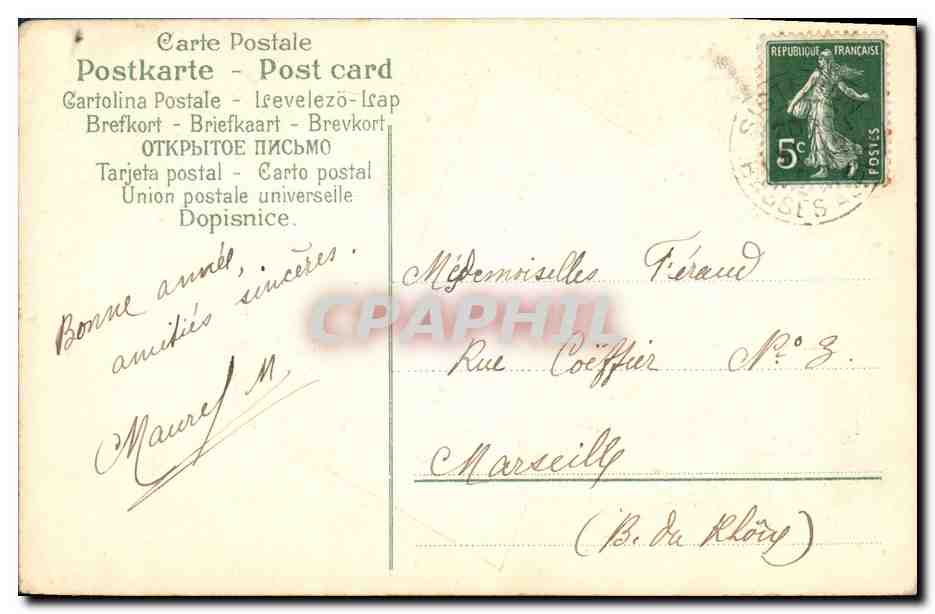 Carte Postale
Postkarte - Post card
Cartolina Postale - Levelezö-Lap
Brefkort - Briefkaart - Brevkort
ОТКРЫТОЕ ПИСЬМО
Tarjeta postal - Carto postal
Union postale universelle
Dopisnice.
REPUBLIQUE FRANÇAISE
5c
POSTES
Bonne année,
amitiés sincères.
Maurel M
Mademoiselles Féraud
Rue Coëffier N.° 3.
Marseille
(B. du Rhône)
CPAPHIL